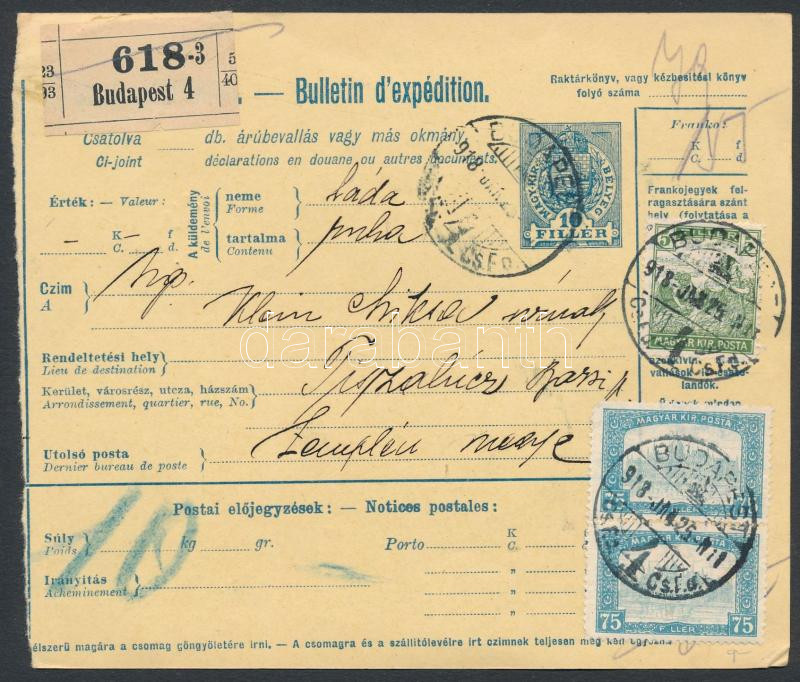 618-3
Budapest 4
5
40
— Bulletin d'expédition.
Raktárkönyv, vagy kézbesítési könyv
folyó száma
Csatolva db. árúbevallás vagy más okmány
Ci-joint déclarations en douane ou autres documents.
Frankó:
K f
C. d.
MAGY. KIR. BÉLYEG
10
FILLÉR
Frankojegyek fel-
ragasztására szánt
hely (folytatása a
Érték: – Valeur:
– K – f
C. d.
A küldemény
de l'envoi
neme
Forme
láda
tartalma
Contenu
ruha
Czim
A
Klein
Rendeltetési hely
Lieu de destination
Kerület, városrész, utcza, házszám
Arrondissement, quartier, rue, No.
Utolsó posta
Dernier bureau de poste
Zemplén megye
MAGYAR KIR. POSTA
BUDAPEST
918 JAN 25
4
Cs.F.g.
landók.
Postai előjegyzések: — Notices postales:
Súly
Poids
kg gr.
Porto
K
C.
"
"
"
Irányítás
Acheminement
10
MAGYAR KIR. POSTA
75
FILLÉR
75
BUDAPEST
918 JAN 25
4
Cs.F.g.
darabanth
élszerű magára a csomag göngyöletére irni. – A csomagra és a szállitólevélre irt czimnek teljesen meg kell egyezni